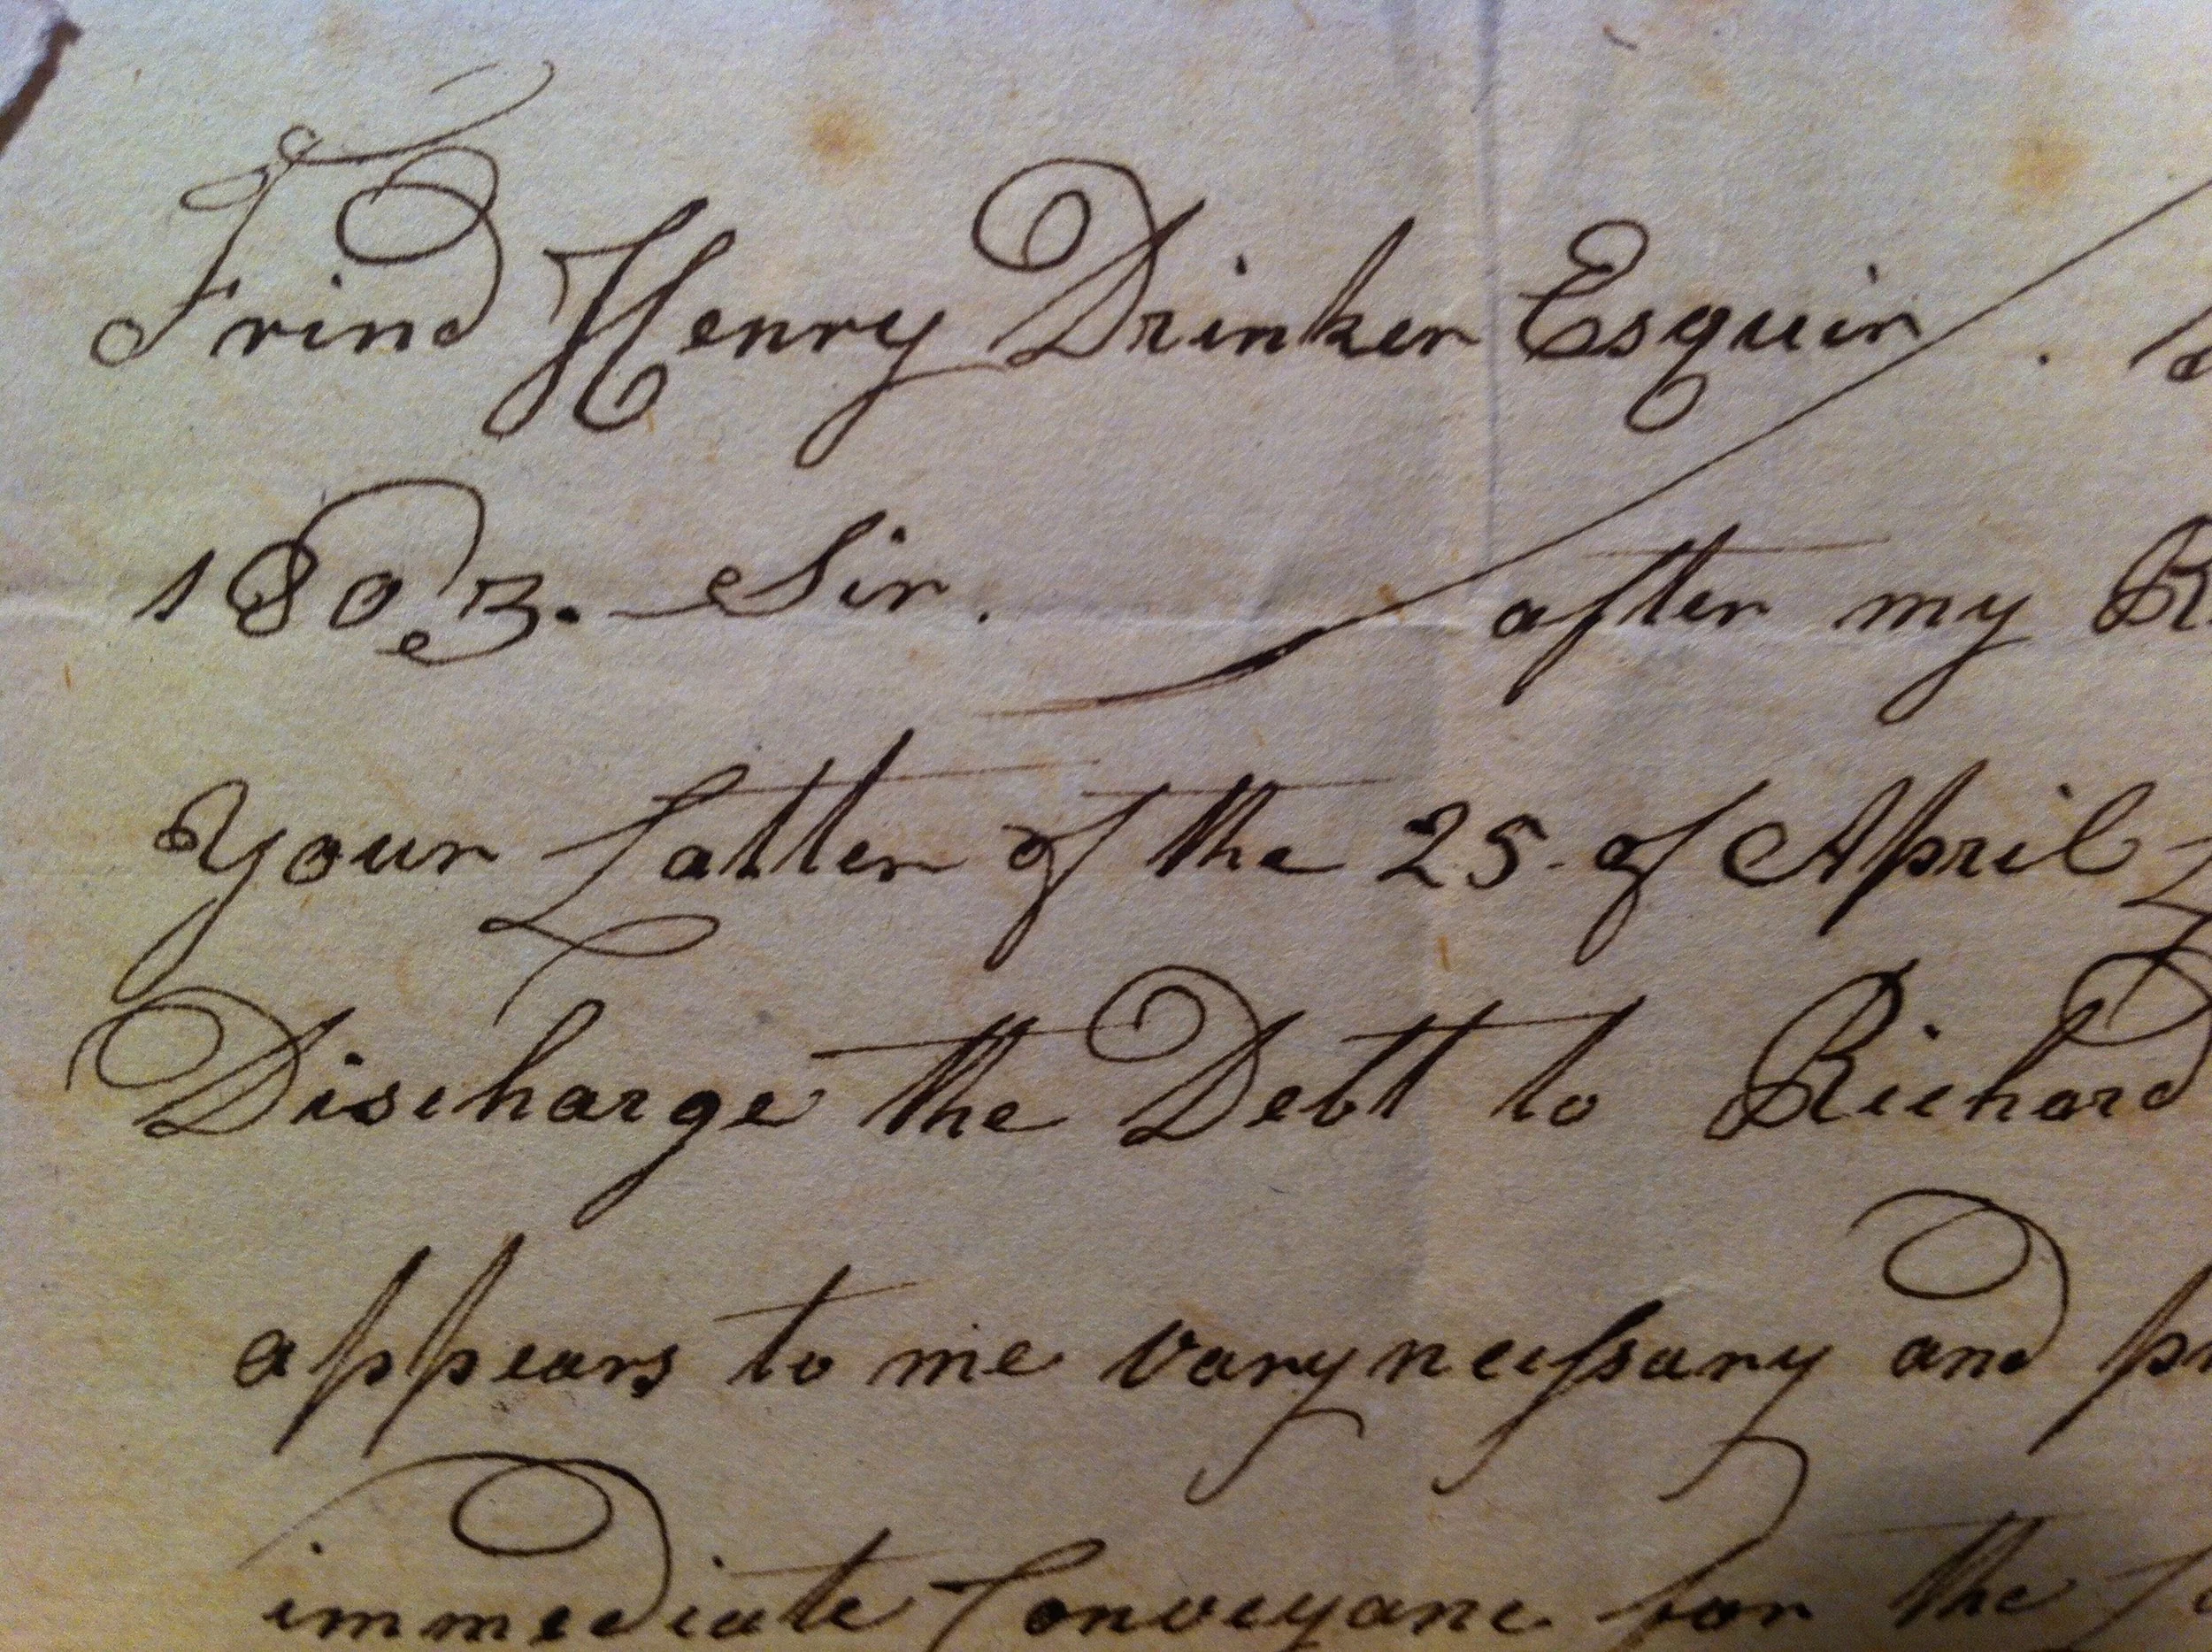 Frind Henry Drinker Esquir.
1803. Sir. after my
Your Latter of the 25 of April
Discharge the Debtt to Richard
appears to me vary necessary and
immediate Conveyanc for the